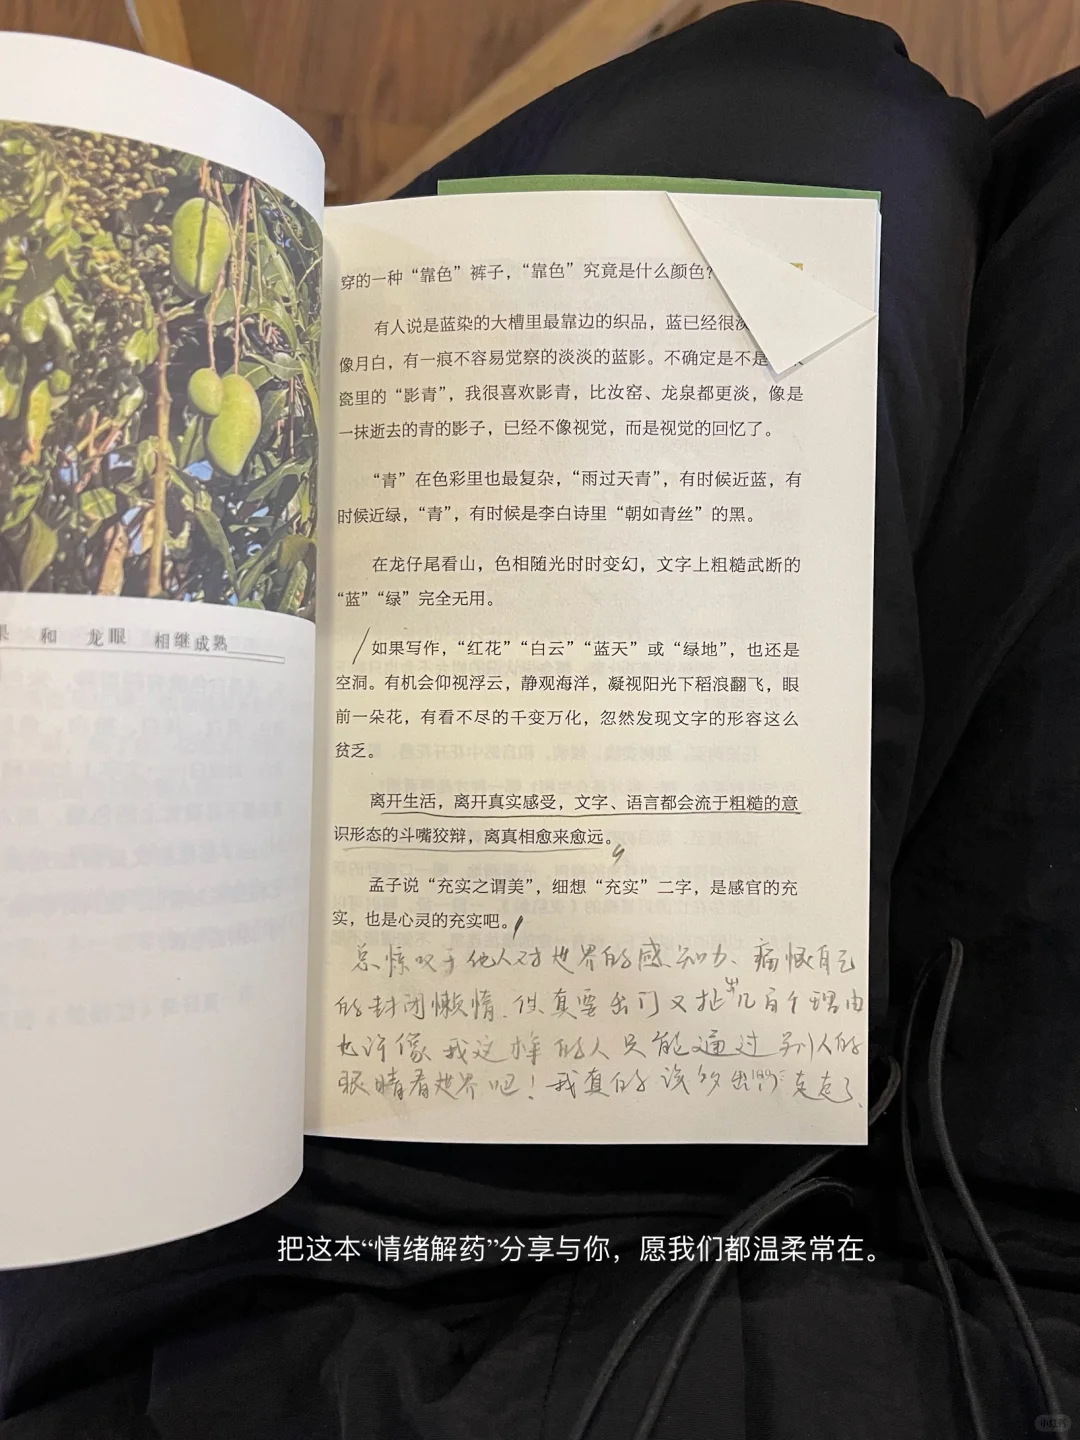 果 和 龙眼 相继成熟
穿的一种“靠色”裤子，“靠色”究竟是什么颜色？
有人说是蓝染的大槽里最靠边的织品，蓝已经很淡
像月白，有一痕不容易觉察的淡淡的蓝影。不确定是不是
瓷里的“影青”，我很喜欢影青，比汝窑、龙泉都更淡，像是
一抹逝去的青的影子，已经不像视觉，而是视觉的回忆了。
“青”在色彩里也最复杂，“雨过天青”，有时候近蓝，有
时候近绿，“青”，有时候是李白诗里“朝如青丝”的黑。
在龙仔尾看山，色相随光时时变幻，文字上粗糙武断的
“蓝”“绿”完全无用。
如果写作，“红花”“白云”“蓝天”或“绿地”，也还是
空洞。有机会仰视浮云，静观海洋，凝视阳光下稻浪翻飞，眼
前一朵花，有看不尽的千变万化，忽然发现文字的形容这么
贫乏。
离开生活，离开真实感受，文字、语言都会流于粗糙的意
识形态的斗嘴狡辩，离真相愈来愈远。
孟子说“充实之谓美”，细想“充实”二字，是感官的充
实，也是心灵的充实吧。
总惊叹于他人对世界的感知力、痛恨自己
的封闭懒惰、但真要出门又扯出几百个理由
也许像我这样的人只能通过别人的
眼睛看世界吧！我真的该多出门走走了、
把这本“情绪解药”分享与你，愿我们都温柔常在。
小红书